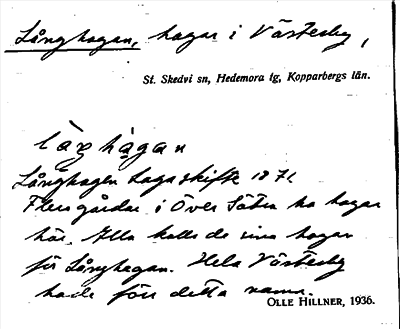 Långhagan, hagar i Västerby,
St. Skedvi sn, Hedemora tg, Kopparbergs län.
Långhagen Laga skifte 1871.
Flera gårdar i Över Sätra ha hagar
här. Alla kalla de sina hagar
för Långhagan. Hela Västerby
hade förr detta namn.
OLLE HILLNER, 1936.